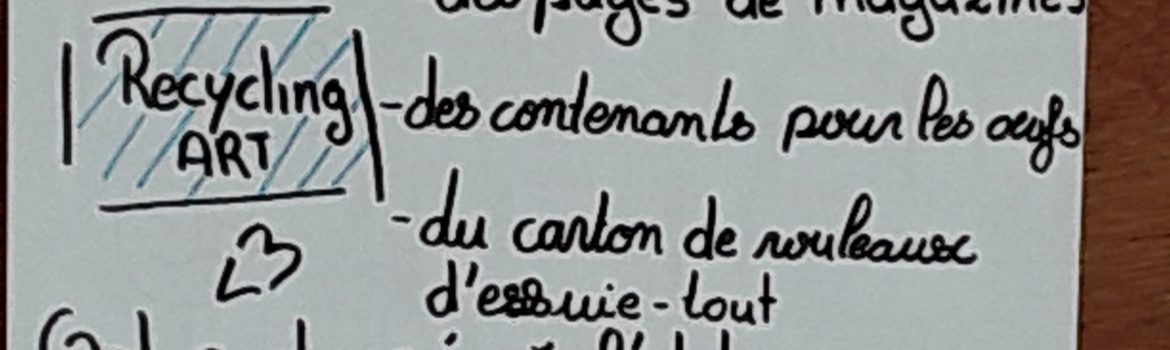 pages de magazines
Recycling
ART
-des contenants pour les œufs
-du carton de rouleaux
d'essuie-tout